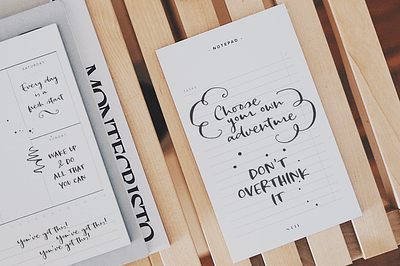 SATURDAY
Every day
is a
fresh start
SUNDAY
WAKE UP
& DO
ALL THAT
YOU CAN
you've got this!
you've got this!
you've got this!
MONTECRISTO
- NOTEPAD -
Choose
your own
adventure
DON'T
OVERTHINK
IT